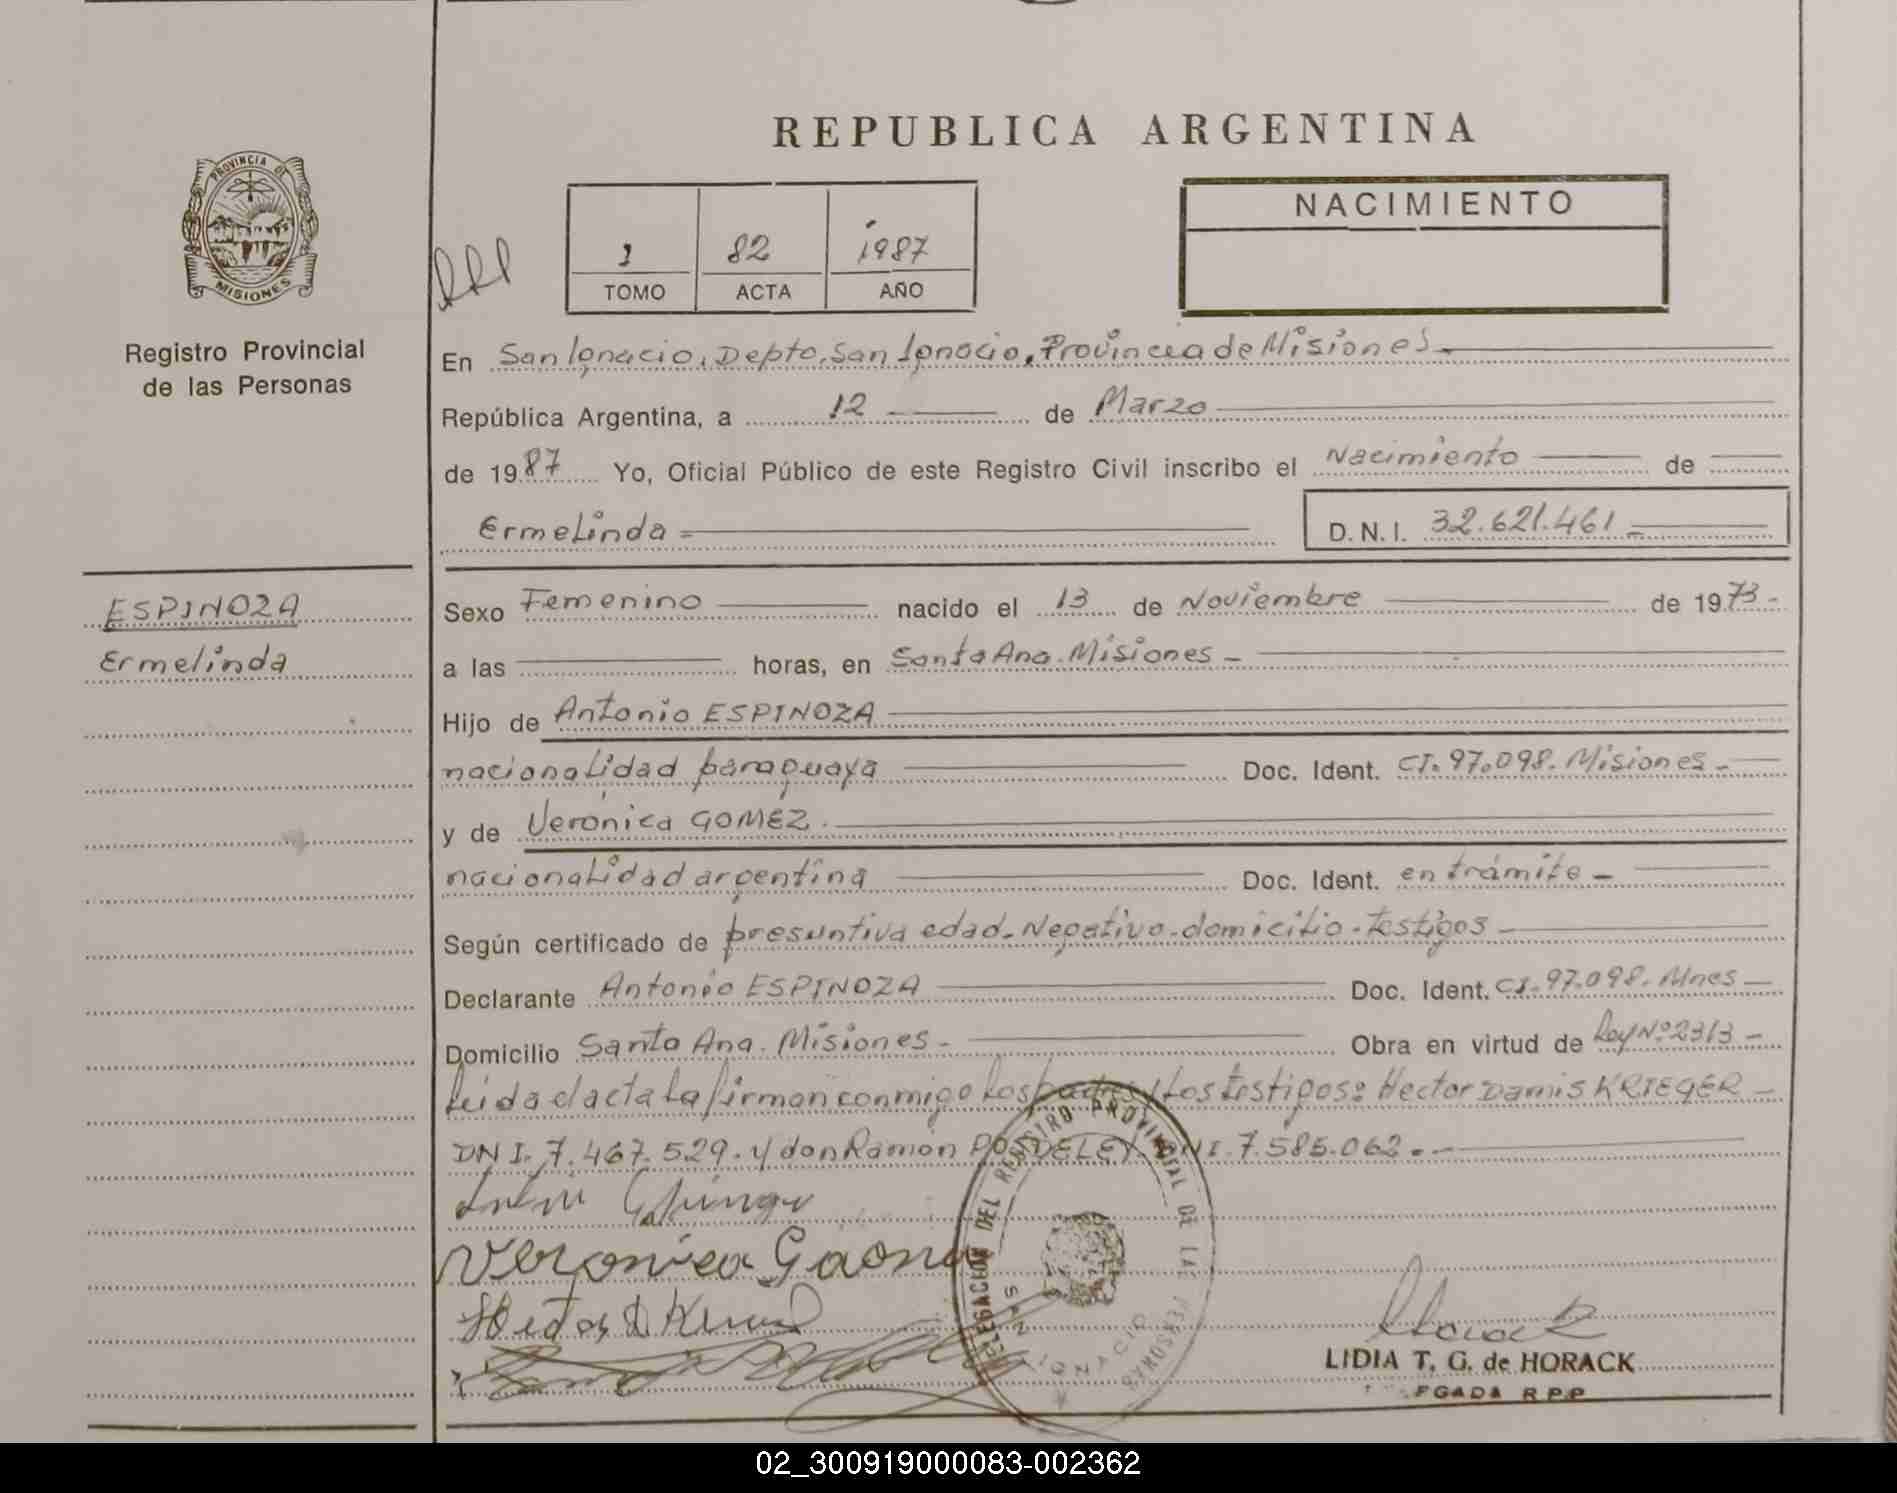 REPUBLICA ARGENTINA
PROVINCIA DE
MISIONES
Registro Provincial
de las Personas
1 82 1987
TOMO ACTA AÑO
NACIMIENTO
En San Ignacio, Depto. San Ignacio, Provincia de Misiones
República Argentina, a 12 de Marzo
de 1987 Yo, Oficial Público de este Registro Civil inscribo el Nacimiento de
Ermelinda D.N.I. 32.621.461
ESPINOZA
Ermelinda
Sexo Femenino nacido el 13 de Noviembre de 1973
a las horas, en Santa Ana. Misiones
Hijo de Antonio ESPINOZA
nacionalidad paraguaya Doc. Ident. CI. 97.098. Misiones
y de Verónica GOMEZ
nacionalidad argentina Doc. Ident. en trámite
Según certificado de presuntiva edad. Negativo. domicilio. testigos
Declarante Antonio ESPINOZA Doc. Ident. CI. 97.098. Mnes
Domicilio Santa Ana. Misiones Obra en virtud de Ley Nº 2313
Leida el acta la firman conmigo los padres y los testigos: Hector Damis KRIEGER
DNI. 7.467.529. y don Ramón 7.585.062.
Veronica Gaona
DELEGACION DEL REGISTRO PROVINCIAL DE LAS PERSONAS
SAN IGNACIO
LIDIA T. G. de HORACK
R.P.P
02_300919000083-002362